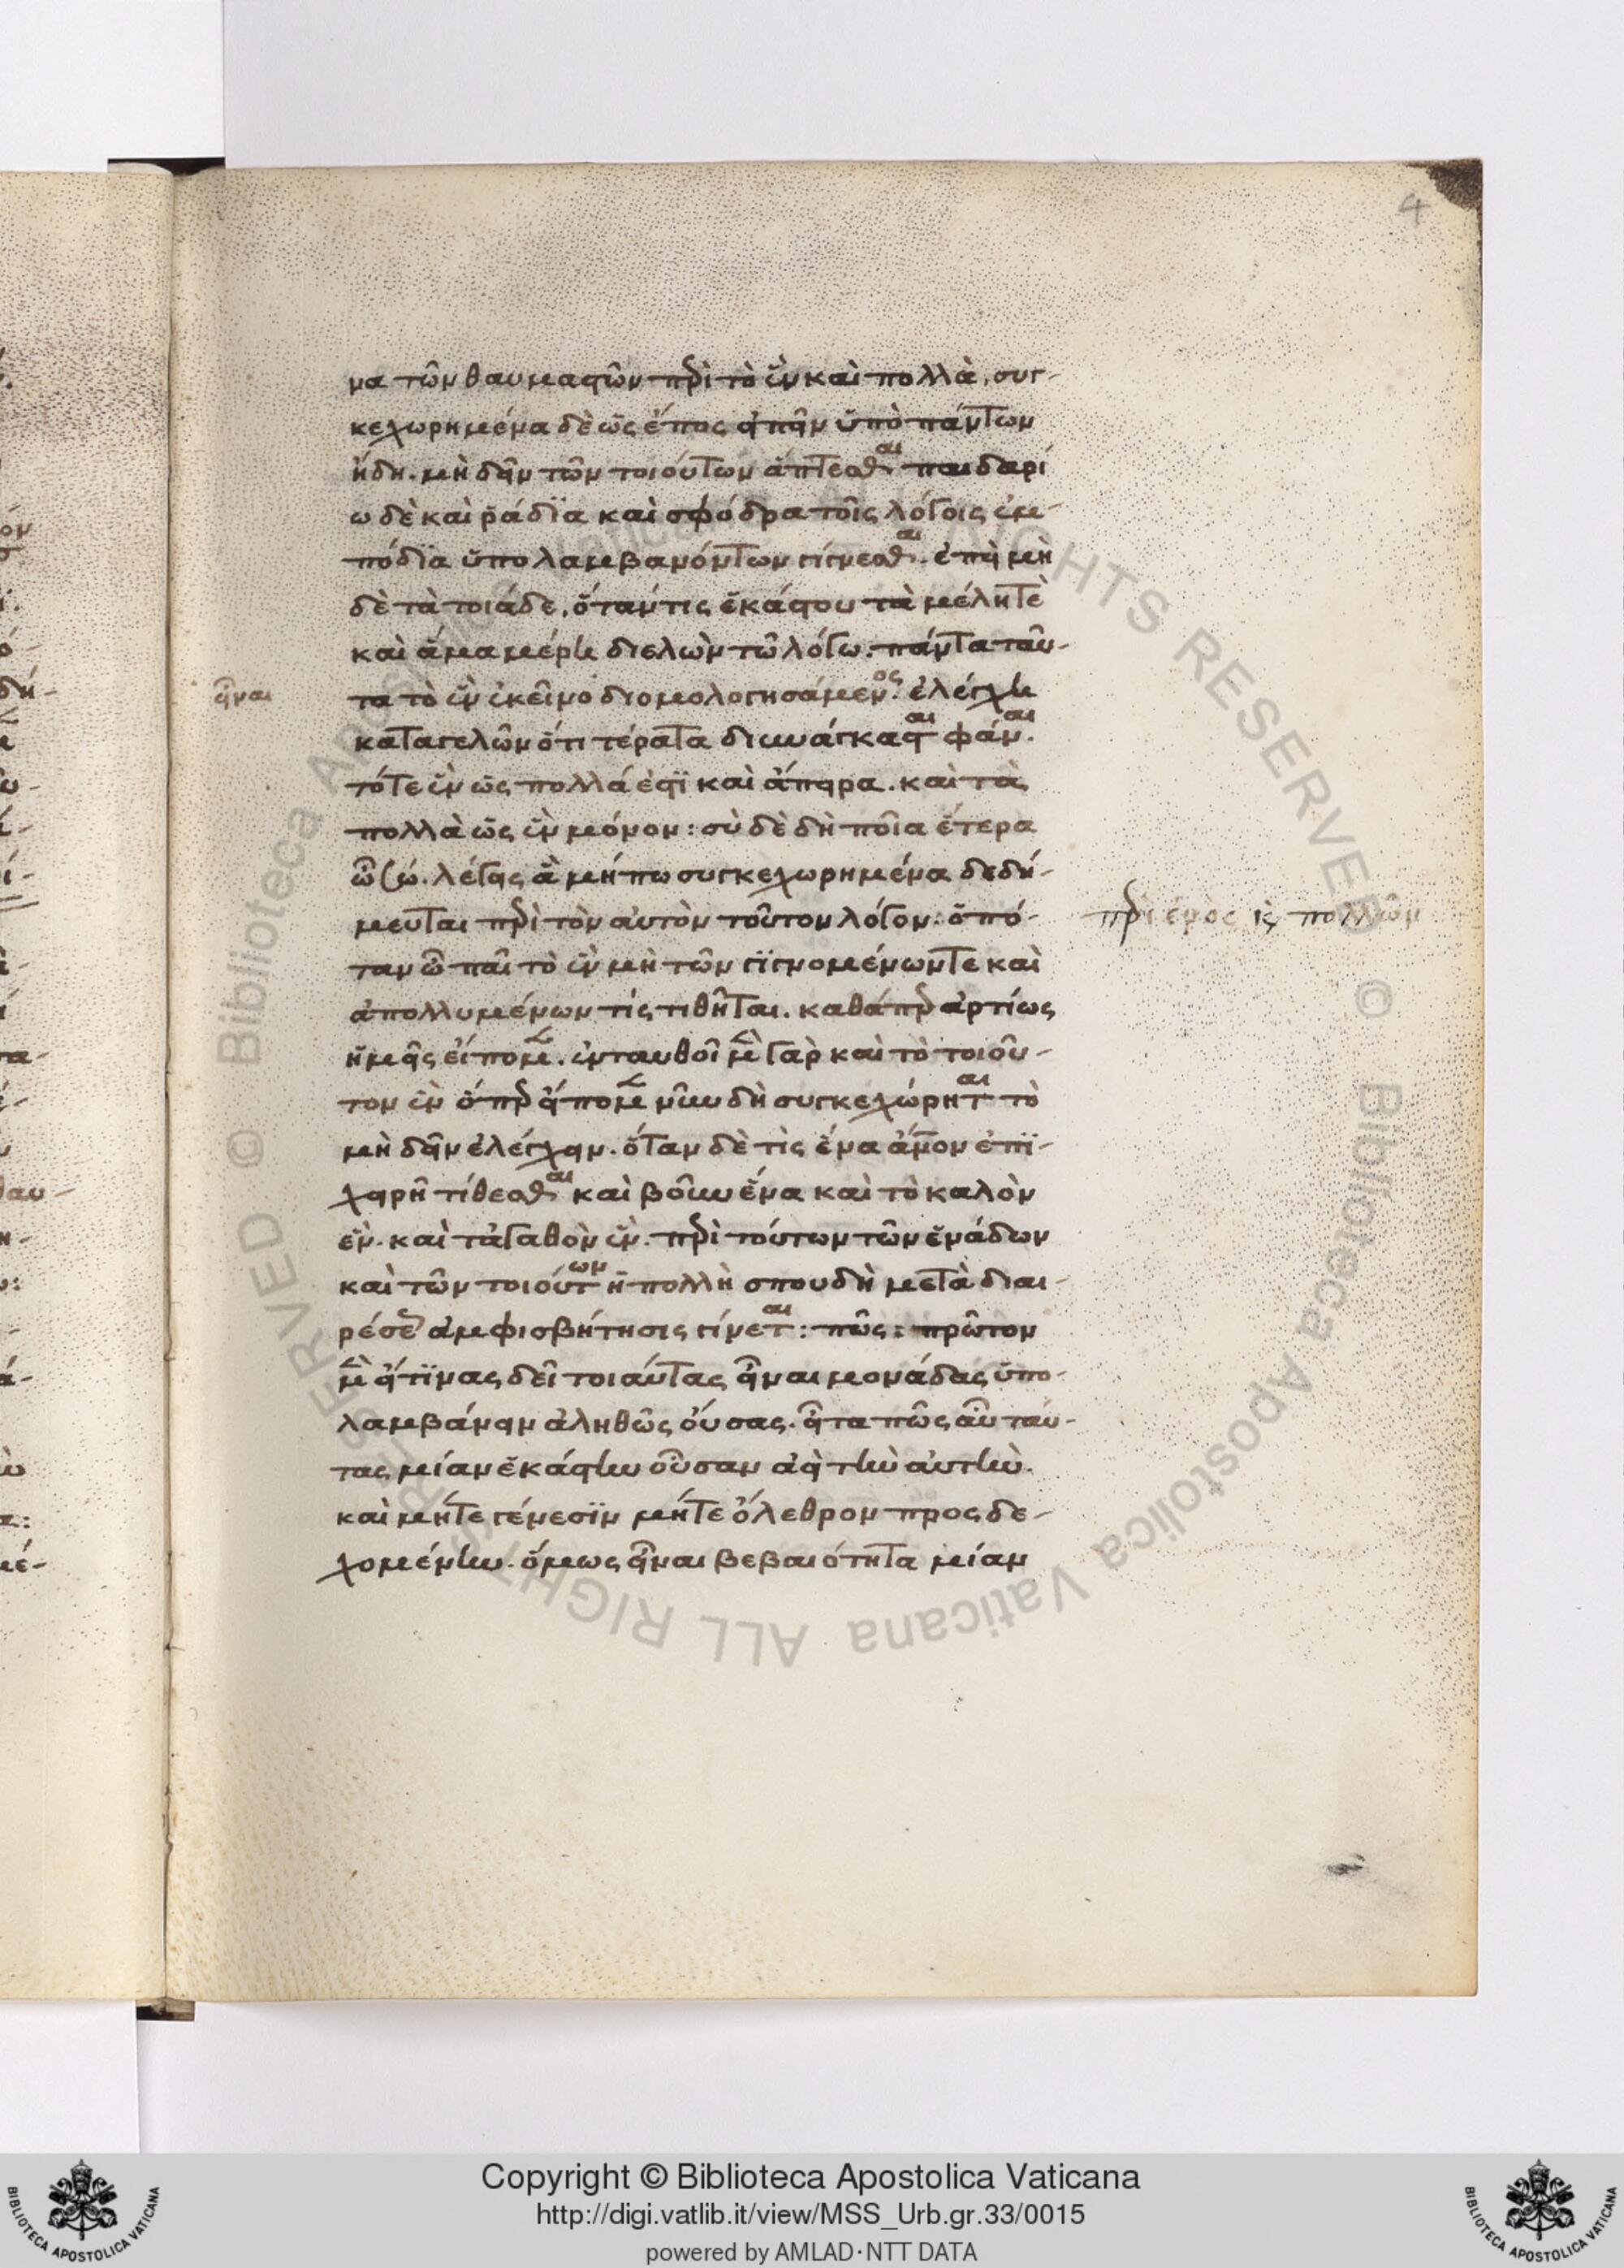 4
μα τῶν θαυμαστῶν περὶ τὸ ἓν καὶ πολλὰ, συγ-
κεχωρημένα δὲ ὡς ἔπος εἰπεῖν ὑπὸ πάντων
ἤδη. μὴ δεῖν τῶν τοιούτων ἅπτεσθαι παιδαρι
ω δὲ καὶ ῥάδϊα καὶ σφόδρα τοῖς λόγοις ἐμ-
πόδϊα ὑπολαμβανόντων γίγνεσθαι. ἐπεὶ μὴ
δὲ τὰ τοιάδε, ὅταν τις ἑκάστου τὰ μέλητὲ
καὶ ἅμα μέρη διελὼν τῶ λόγω. πάντα ταῦ-
εἶναι
τα τὸ ἓν ἐκεῖνο διομολογησάμενος. ἐλέγχη
καταγελῶν ὅτι τέρατα διηνάγκασται φάναι.
τότε ἓν ὡς πολλά ἐστϊ καὶ ἄπειρα. καὶ τὰ
πολλὰ ὡς ἓν μόνον: σὺ δὲ δὴ ποῖα ἕτερα
ὦ σώ. λέγεις ἃ μήπω συγκεχωρημένα δεδή-
μευται περὶ τὸν αὐτὸν τοῦτον λόγον: ὁπό-
περὶ ἑνὸς καὶ πολλῶν
ταν ὦ παῖ τὸ ἓν μὴ τῶν γϊγνομένωντε καὶ
ἀπολλυμένων τίς τιθῆται. καθάπερ ἀρτίως
ἡμεῖς εἴπομεν. ἐνταυθοῖ μὲν γὰρ καὶ τὸ τοιοῦ-
τον ἓν ὅπερ εἴπομεν νῦν δὴ συγκεχώρηται τὸ
μὴ δεῖν ἐλέγχειν. ὅταν δὲ τὶς ἕνα ἄνον ἐπϊ-
χειρῆ τίθεσθαι καὶ βοῦν ἕνα καὶ τὸ καλὸν
ἓν. καὶ τἀγαθὸν ἓν. περὶ τούτων τῶν ἑνάδων
καὶ τῶν τοιούτων ἡ πολλὴ σπουδὴ μετὰ διαι-
ρέσεως ἀμφισβήτησις γίνεται: πῶς: πρῶτον
μὲν εἴτϊνας δεῖ τοιαύτας εἶναι μονάδας ὑπο-
λαμβάνειν ἀληθῶς οὔσας. εἶτα πῶς αὖ ταύ-
τας μίαν ἑκάστην οὖσαν ἀεὶ τὴν αὐτὴν.
καὶ μήτε γένεσϊν μήτε ὄλεθρον προςδε-
χομένην. ὅμως εἶναι βεβαιότητα μίαν
© Biblioteca Apostolica Vaticana ALL RIGHTS RESERVED © Biblioteca Apostolica Vaticana ALL RIGHTS RESERVED
Copyright © Biblioteca Apostolica Vaticana
http://digi.vatlib.it/view/MSS_Urb.gr.33/0015
powered by AMLAD·NTT DATA
BIBLIOTECA APOSTOLICA VATICANA
BIBLIOTECA APOSTOLICA VATICANA